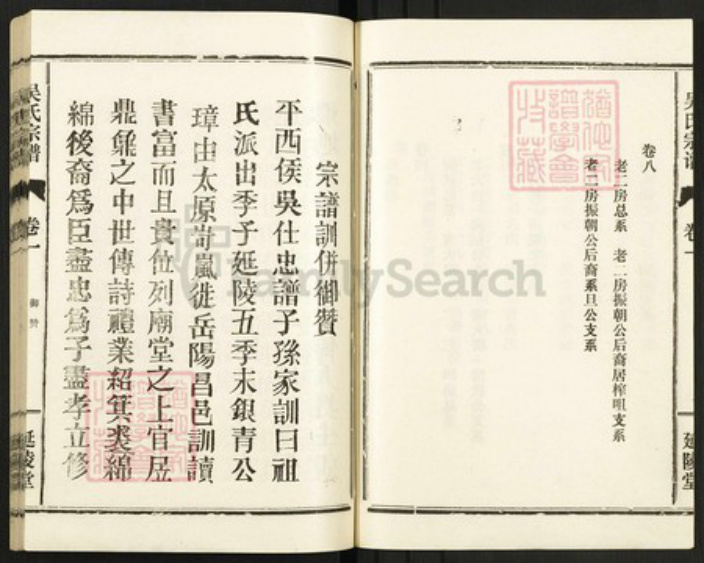 吴氏宗谱
卷一
延陵堂
卷八
老二房总系 老二房振朝公后裔居榨咀支系
老二房振朝公后裔系旦公支系
宗譜訓併御贊
平西侯吳仕忠譜子孫家訓曰祖
氏派出季子延陵五季末銀青公
璋由太原岢嵐徙岳陽昌邑訓讀
書富而且貴位列廟堂之上官居
鼎鼐之中世傳詩禮業紹箕裘綿
綿後裔爲臣盡忠爲子盡孝立修
吴氏宗谱
卷一
御赞
延陵堂
FamilySearch